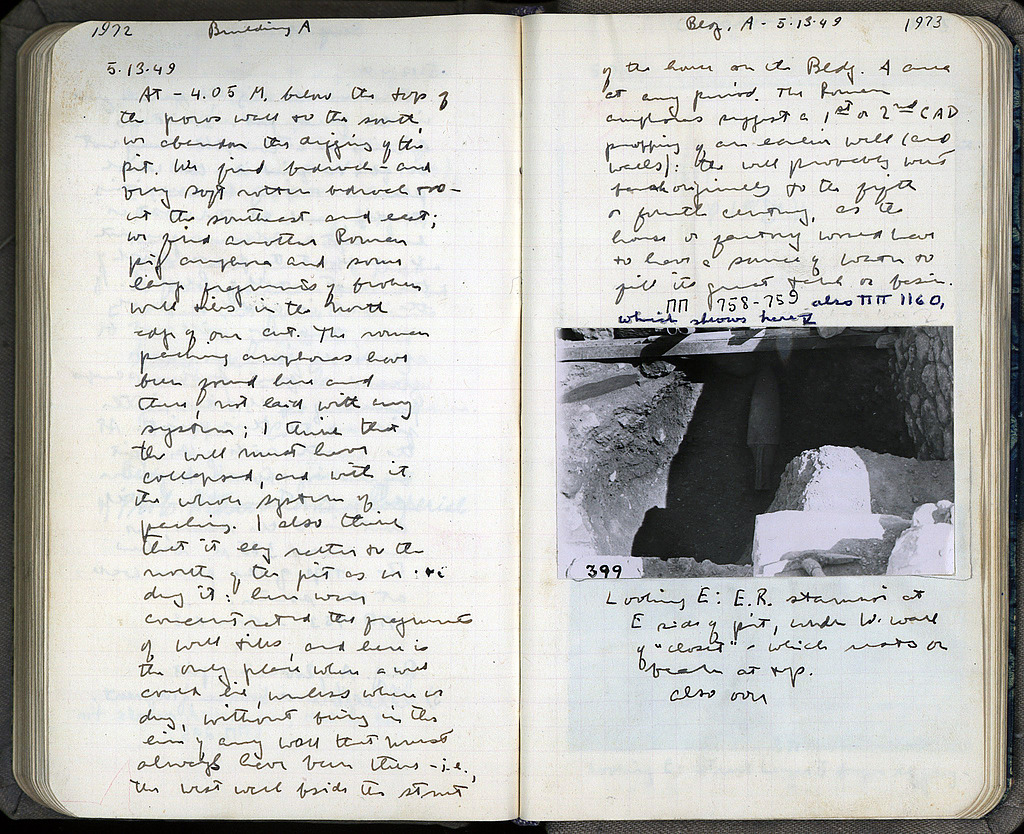 1972 Building A
5.13.49
At - 4.05 M. below the top of
the poros wall to the south,
we abandon the digging of the
pit. We find bedrock - and
very soft rotten bedrock too -
at the southeast and east;
we find another Roman
pif amphora and some
large fragments of broken
well tiles in the north
edge of our cut. The roman
packing amphoras have
been found here and
there, not laid with any
system; I think that
the well must have
collapsed, and with it
the whole system of
packing. I also think
that it lay rather to the
north of the pit as we
dug it: here were
concentrated the fragments
of well tiles, and here is
the only place where a well
could lie, unless where we
dug, without being in the
line of any wall that must
always have been there - i.e.,
the west wall beside the street
Bldg. A - 5.13.49 1973
of the house on the Bldg. A area
at any period. The Roman
amphoras suggest a 1st or 2nd C AD
propping of an earlier well (and
walls): the well probably went
back originally to the fifth
or fourth century, as the
house or factory would have
to have a source of water to
fill its great tank or basin.
ΠΠ 758-759 also ΠΠ 1160,
which shows here
399
Looking E: E.R. stamnoi at
E side of pit, under W. wall
of "closet" - which rests on
beam at top.
also over